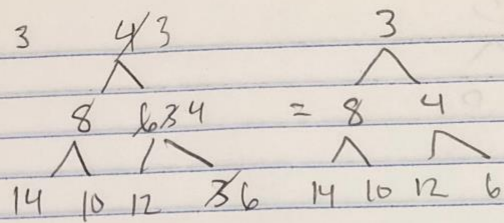 3 4 3 3
8 6 3 4 = 8 4
14 10 12 3 6 14 10 12 6